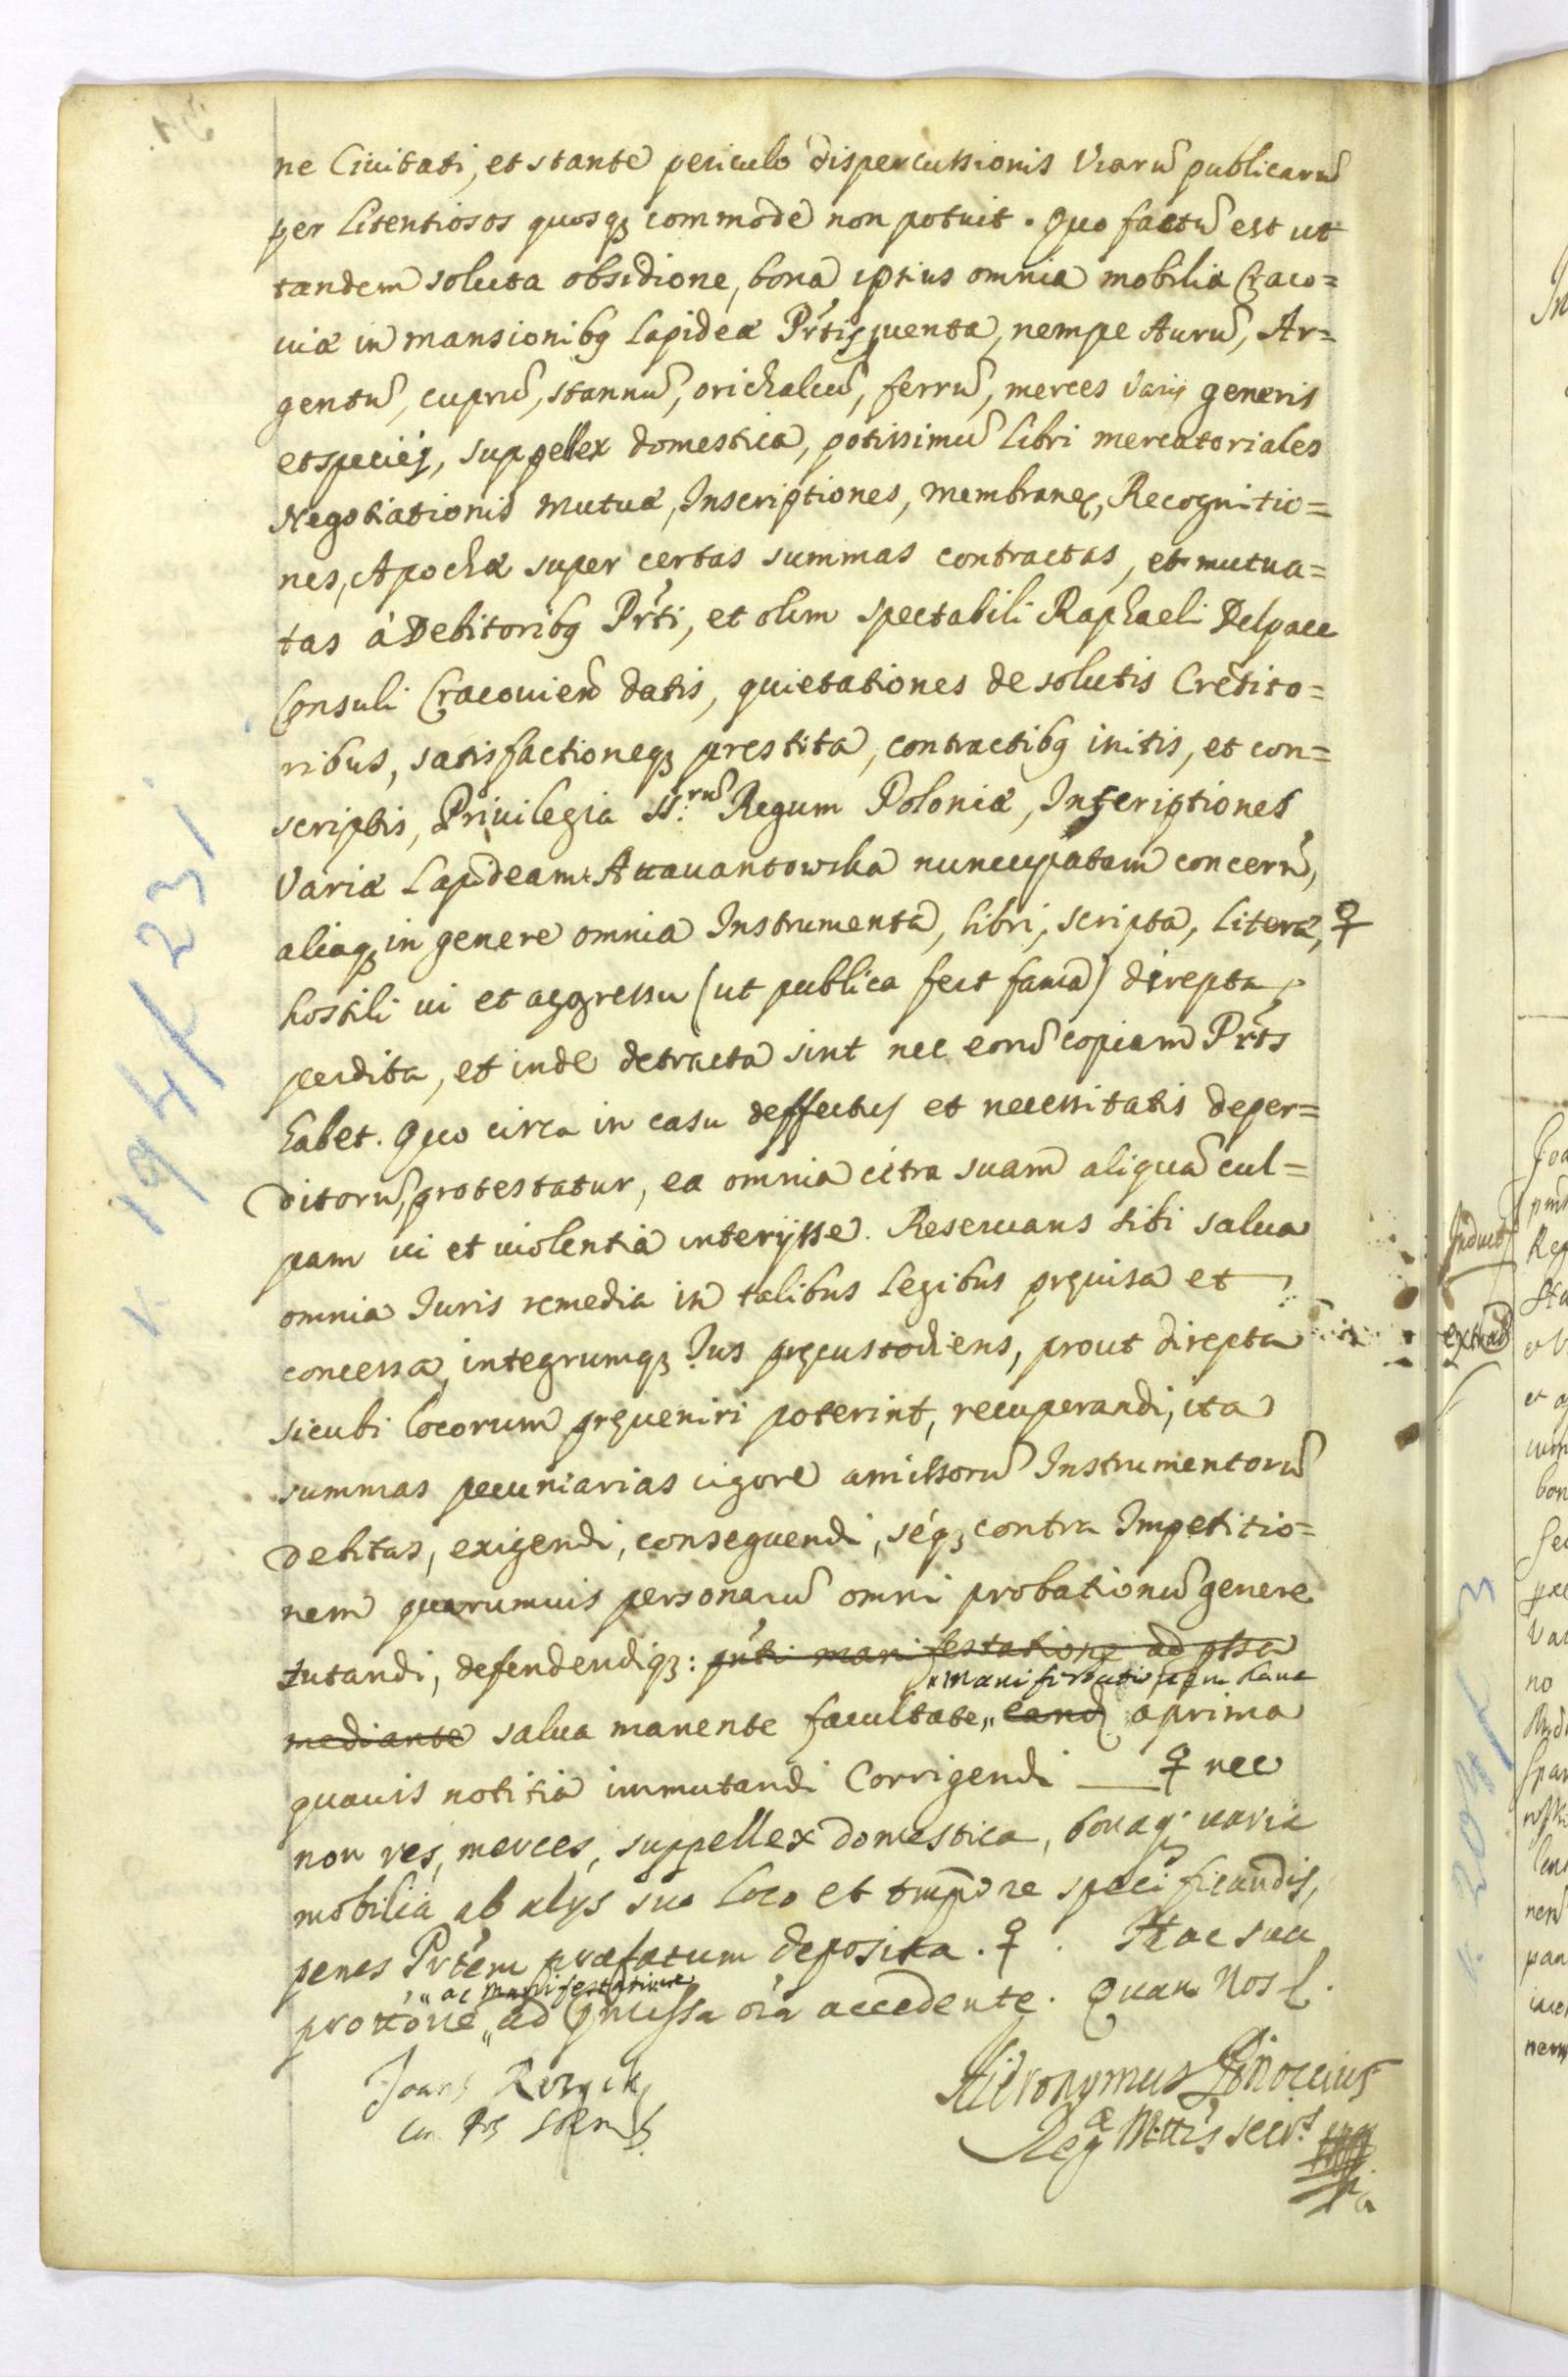 ne Ciuitati, et stante periculo dispercussionis Viarũ publicarũ
per licentiosos quosqꝫ commodè non potuit. Quo factũ est ut
tandem soluta obsidione, bona ipsius omnia mobilia Craco=
uiæ in mansionibꝫ Lapideæ Prtis inuenta, nempe Aurũ, Ar=
gentũ, cuprũ, stannũ, orichalcũ, ferrũ, merces varij generis
et speciej, suppellex domestica, potissimũ libri mercatoriales
Negotiationis mutuæ, Inscriptiones, membranę, Recognitio=
nes, Apochæ super certas summas contractas, et mutua=
tas à Debitoribꝫ Prti, et olim spectabili Raphaeli Delpace
Consuli Cracouień datis, quietationes de solutis Credito=
ribus, satisfactioneqꝫ prestita, contractibꝫ initis, et con=
scriptis, Priuilegia SS:rũ Regum Poloniæ, Inscriptiones
Variæ Lapideam Attauantowska nuncupatam concerñ,
aliaqꝫ in genere omnia Instrumenta, libri, scripta, literæ, ♀
hostili ui et aggressu (ut publica fert fama) direpta,
perdita, et inde detracta sint nec eorũ copiam Prts
habet. Quo circa in casu deffectus et necessitatis deper=
ditorũ, protestatur, ea omnia citra suam aliquã cul=
pam ui et uiolentia interijsse. Reseruans sibi salua
omnia Iuris remedia in talibus legibus pręuisa et
concessa, integrumqꝫ Jus pręcustodiens, prout direpta
sicubi locorum pręueniri poterint, recuperandi, ita
summas pecuniarias uigore amissorũ Instrumentorũ
debitas, exigendi, consequendi, séqꝫ contra Impetitio=
nem quarumuis personarũ omni probationũ genere
tutandi, defendendiqꝫ: pñti manifestatione ad pssa
manifestationem hanc
mediante salua manente facultate, eand a prima
quauis notitia immutandi Corrigendi ♀ nec
non res, merces, suppellex domestica, bonaqꝫ uaria
mobilia ab alys suo loco et tmpore specificandis,
penes Prtem præfatum deposita. ♀. Hac sua
ac manifestatione
prottone ad pmissa oia accedente. Quam Nos
Hieronymus Pinoccius
Reg Mttis secrs
K 194/231
Induct
extrad